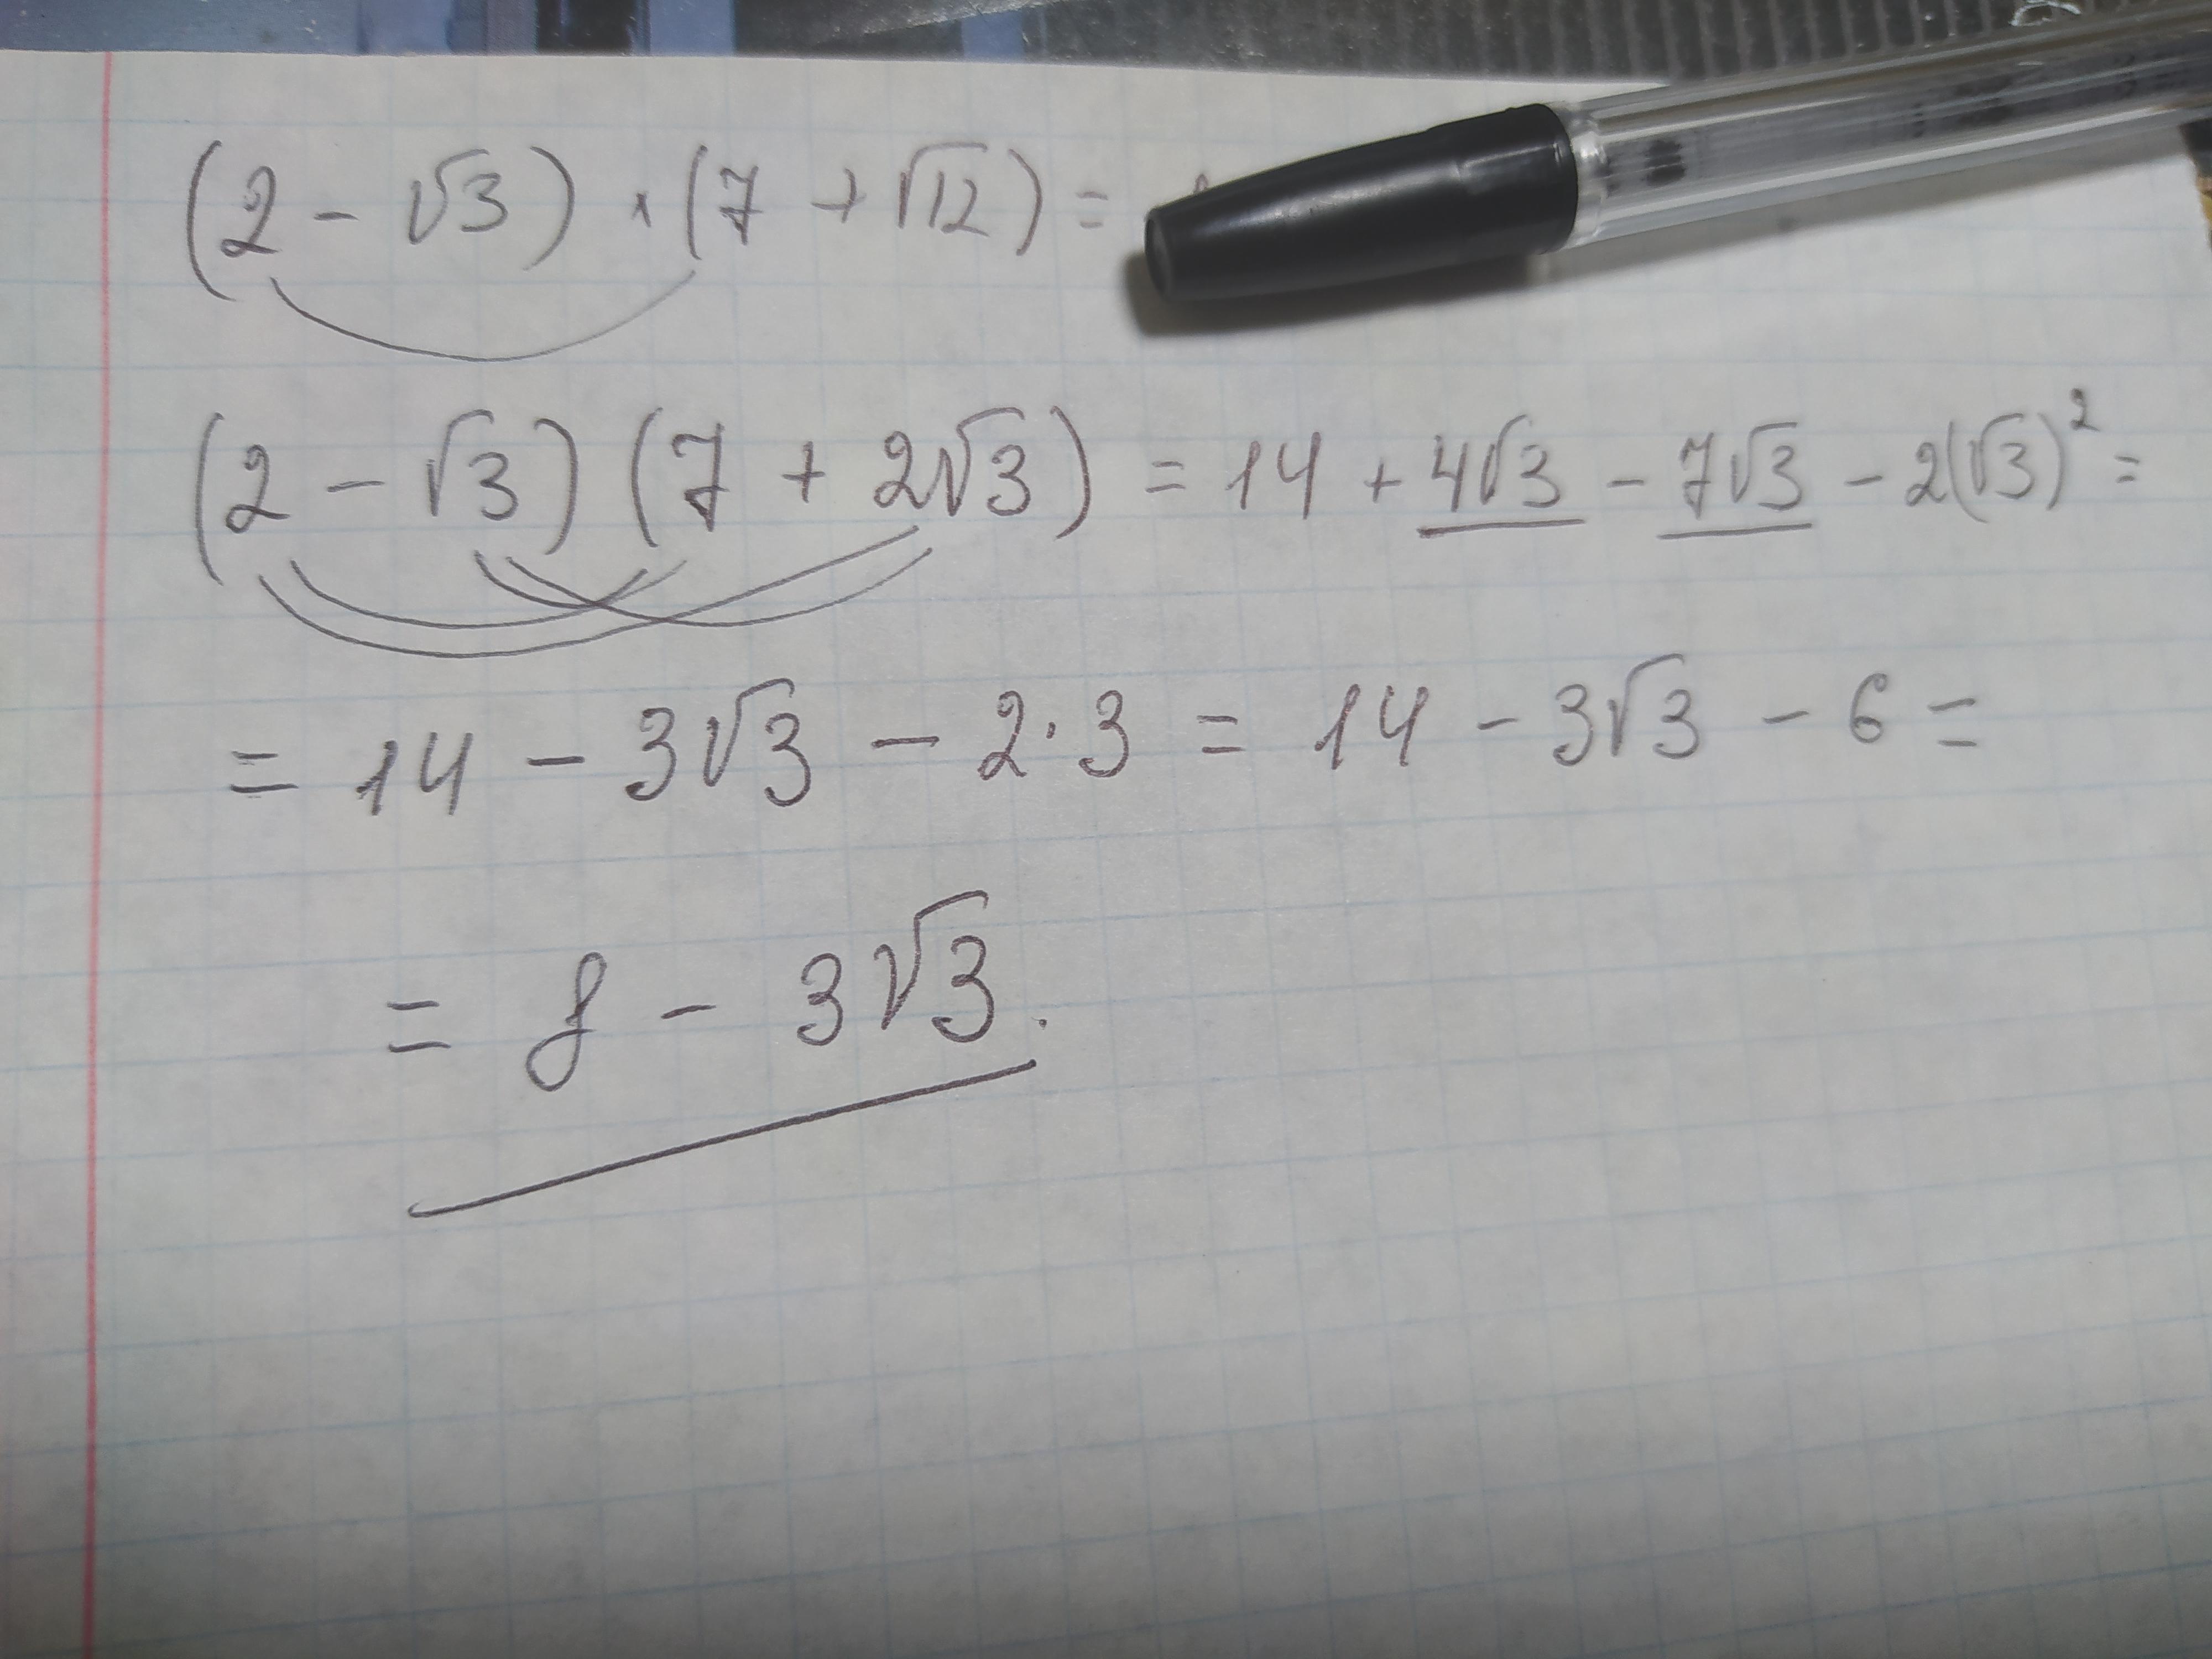 (2 - √3) · (7 + √12) =
(2 - √3) (7 + 2√3) = 14 + 4√3 - 7√3 - 2(√3)² =
= 14 - 3√3 - 2·3 = 14 - 3√3 - 6 =
= 8 - 3√3.